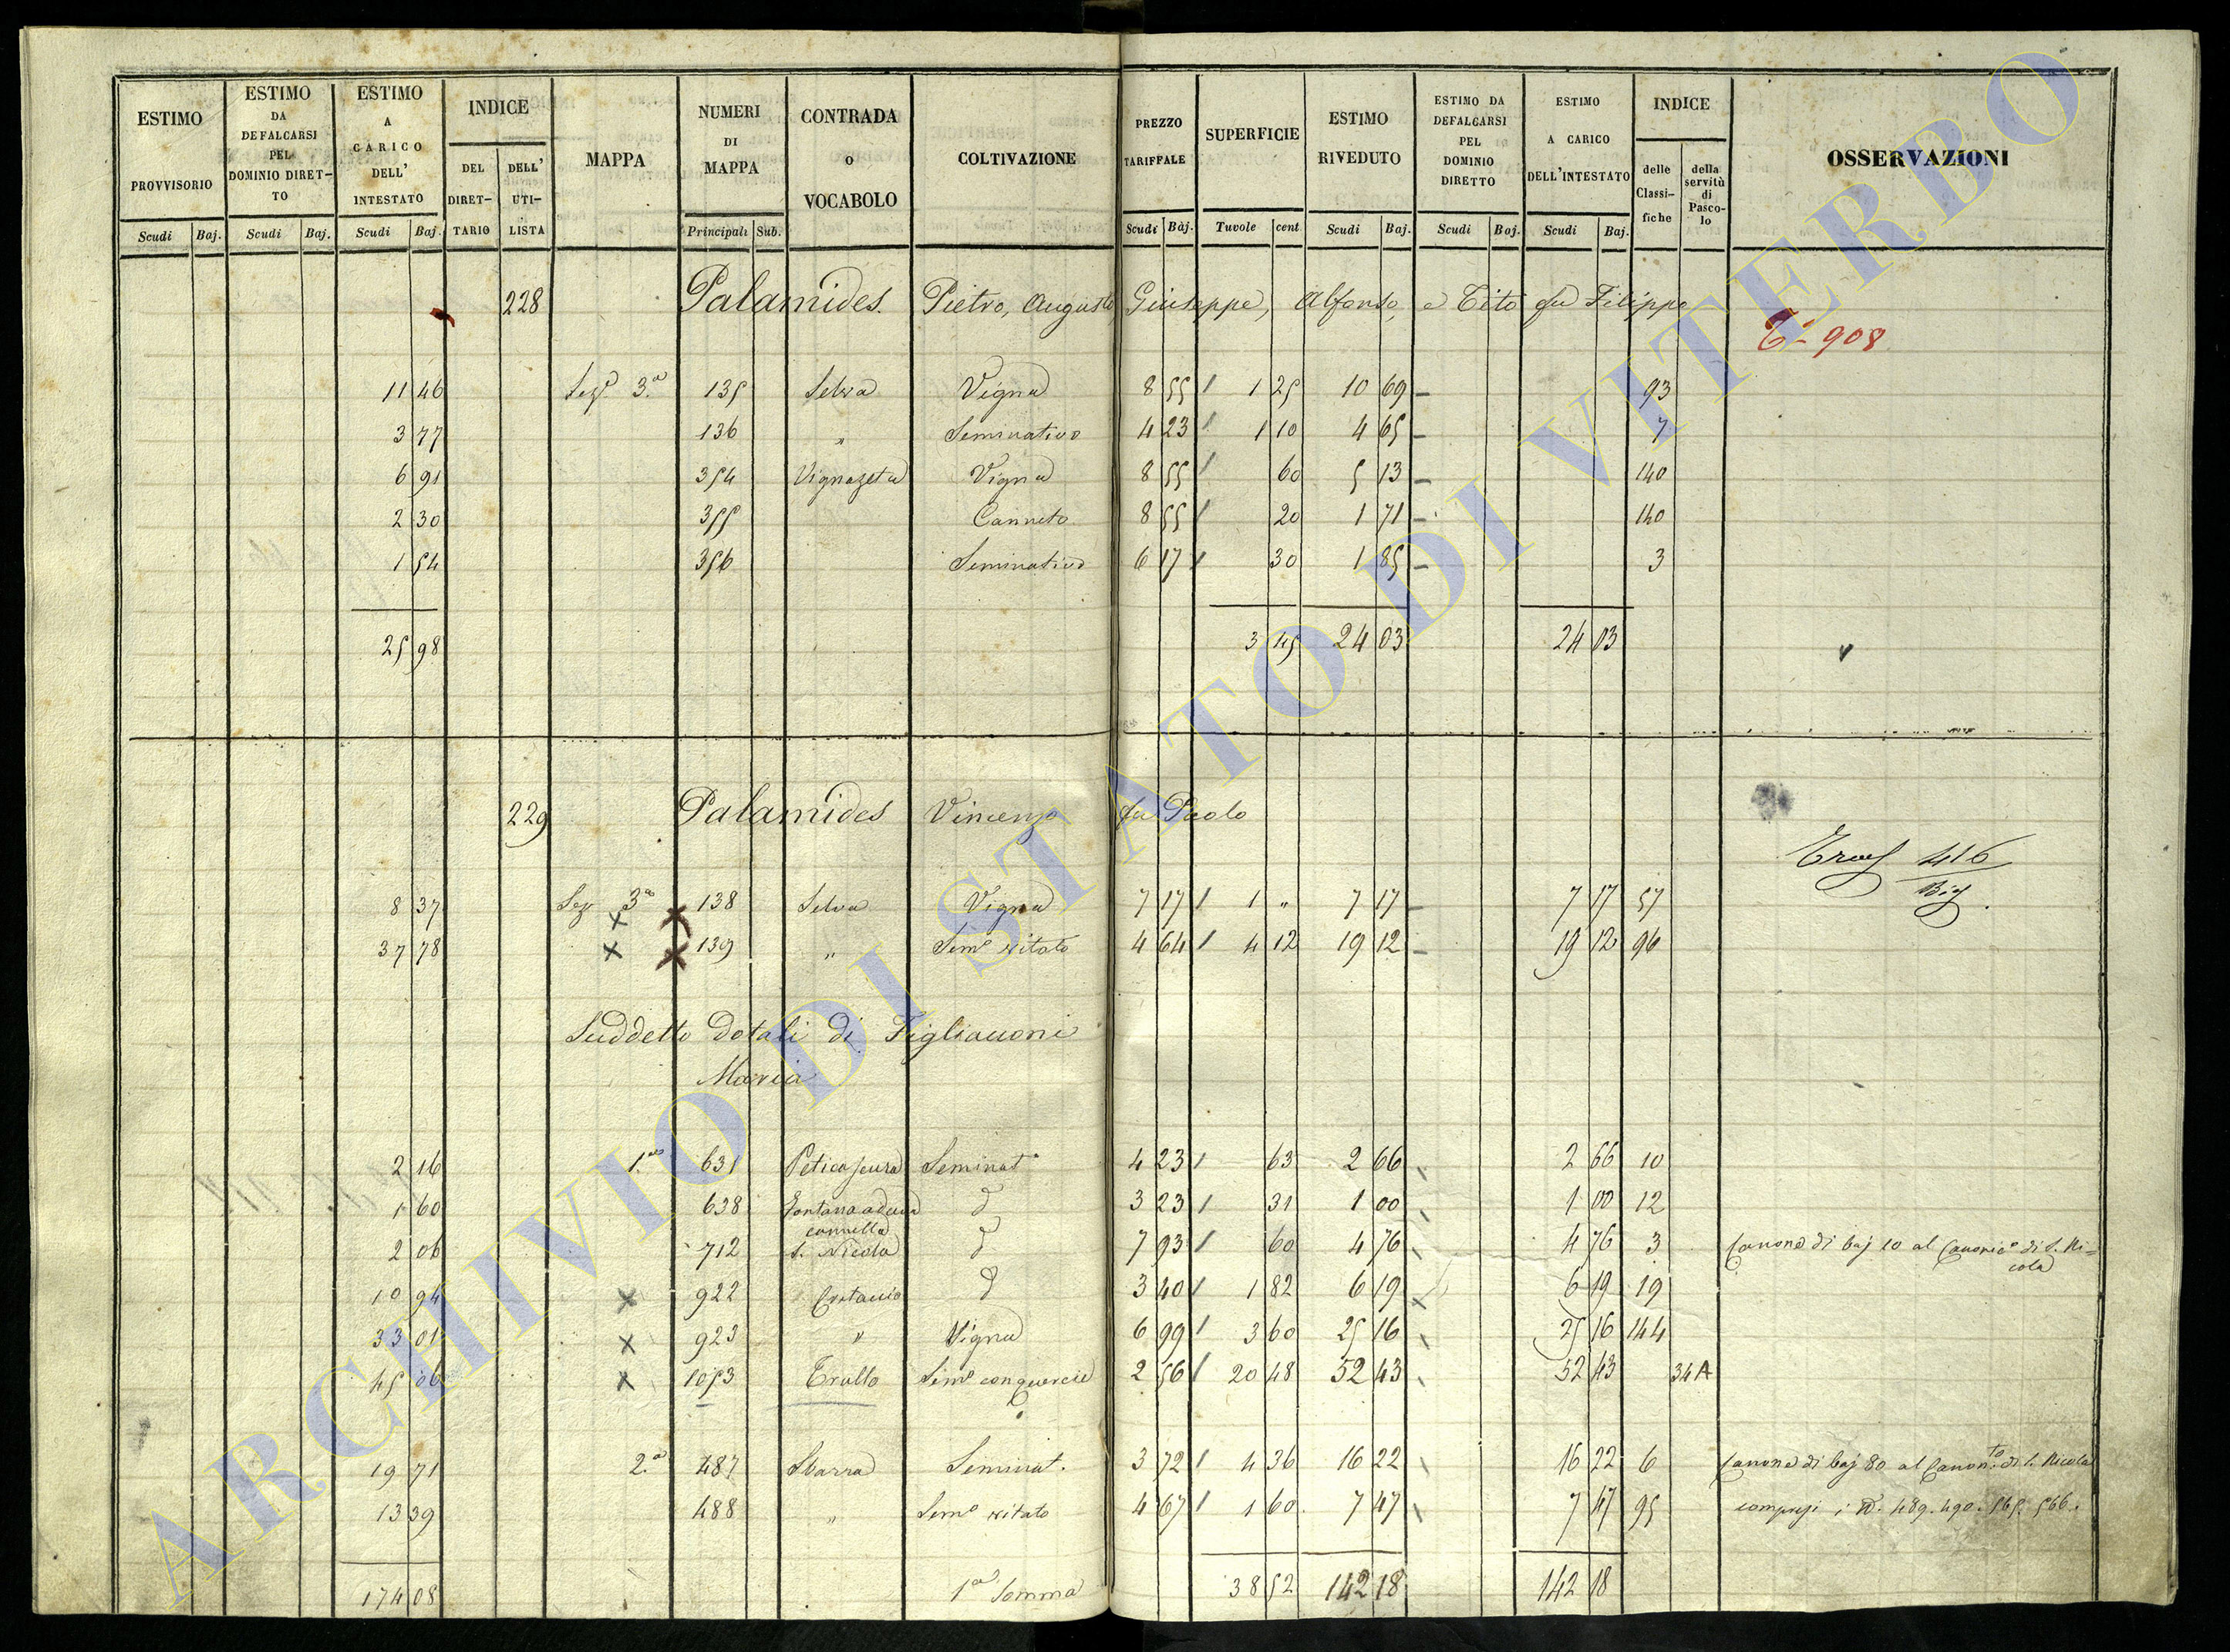 ESTIMO PROVVISORIO | ESTIMO DA DEFALCARSI PEL DOMINIO DIRET-TO | ESTIMO A CARICO DELL' INTESTATO | INDICE | MAPPA | NUMERI DI MAPPA | CONTRADA O VOCABOLO | COLTIVAZIONE | PREZZO TARIFFALE | SUPERFICIE | ESTIMO RIVEDUTO | ESTIMO DA DEFALCARSI PEL DOMINIO DIRETTO | ESTIMO A CARICO DELL'INTESTATO | INDICE | OSSERVAZIONI
DEL DIRET-TARIO | DELL' UTI-LISTA | delle Classi-fiche | della servitù di Pasco-lo
Scudi | Baj. | Scudi | Baj. | Scudi | Baj. | Principali | Sub. | Scudi | Baj. | Tavole | cent. | Scudi | Baj. | Scudi | Baj. | Scudi | Baj.
228 Palamides. Pietro, Augusto, Giuseppe, Alfonso, e Tito fu Filippo
908
11 46 | Sez.e 3.a | 135 | Selva | Vigna | 8 55 | 1 25 | 10 69 | 93
3 77 | 136 | " | Seminativo | 4 23 | 1 10 | 4 65 | 7
6 91 | 354 | Vignazeta | Vigna | 8 55 | 60 | 5 13 | 140
2 30 | 355 | Canneto | 8 55 | 20 | 1 71 | 140
1 54 | 356 | Seminativo | 6 17 | 30 | 1 85 | 3
25 98 | 3 45 | 24 03 | 24 03
229 Palamides Vincenzo fu Paolo
416
8 37 | Sez 3a | 138 | Selva | Vigna | 7 17 | 1 " | 7 17 | 7 17 | 57
37 78 | 139 | " | Sem.o vitato | 4 64 | 4 12 | 19 12 | 19 12 | 96
Suddetto dotali di Figliacconi
Maria
2 16 | 1.a | 631 | Seminat.o | 4 23 | 63 | 2 66 | 2 66 | 10
1 60 | 638 | Fontana | d | 3 23 | 31 | 1 00 | 1 00 | 12
cannella
2 06 | 712 | S. Nicola | d | 7 93 | 60 | 4 76 | 4 76 | 3 | Canone di baj 10 al Canonic.o di S. Ni=
cola
10 94 | 922 | d | 3 40 | 1 82 | 6 19 | 6 19 | 19
33 01 | 923 | " | Vigna | 6 99 | 3 60 | 25 16 | 25 16 | 144
45 06 | 1053 | Trullo | Sem.o con quercie | 2 56 | 20 48 | 52 43 | 52 43 | 34 A
19 71 | 2.a | 487 | Sbarra | Seminat. | 3 72 | 4 36 | 16 22 | 16 22 | 6 | Canone di baj 80 al Canon.to di S. Nicola
13 39 | 488 | " | Sem.o vitato | 4 67 | 1 60 | 7 47 | 7 47 | 95 | compresi i N. 489. 490. 565. 566.
174 08 | 1.a Somma | 38 52 | 142 18 | 142 18
ARCHIVIO DI STATO DI VITERBO